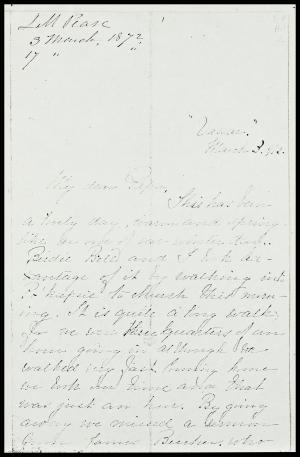 L M Pease
3 March, 1872.
17 " "
"Vassar."
March 3. 72.
My dear Papa,
This has been
a lovely day, warm and spring
like as one of our winter days.
Birdie Bold and I took ad-
vantage of it by walking into
P'keepsie to Church this morn-
ing. It is quite a long walk,
for we were three quarters of an
hour going in although we
walked very fast. Coming home
we took our time and that
was just an hour. By going
away we missed a sermon
from James Beecher, who